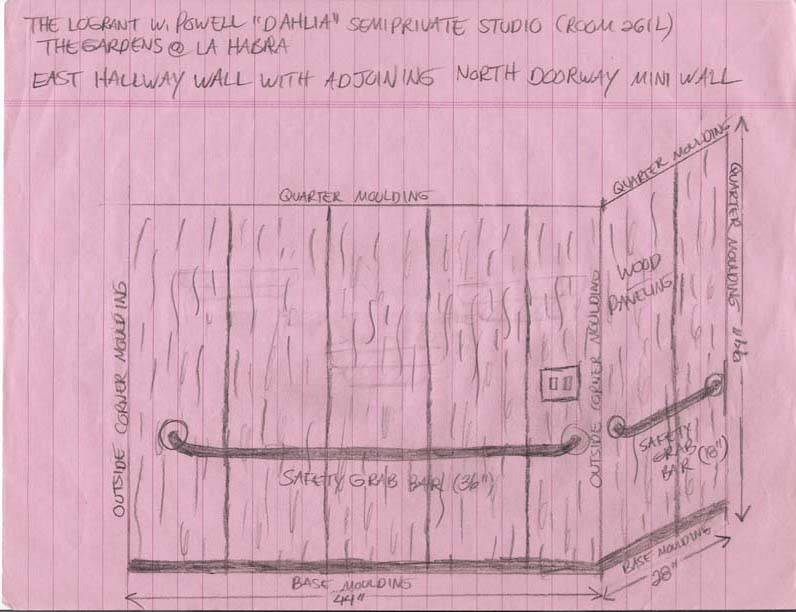 THE LOGRANT W. POWELL "DAHLIA" SEMIPRIVATE STUDIO (ROOM 261L)
THE GARDENS @ LA HABRA
EAST HALLWAY WALL WITH ADJOINING NORTH DOORWAY MINI WALL
QUARTER MOULDING
QUARTER MOULDING
QUARTER MOULDING
OUTSIDE CORNER MOULDING
OUTSIDE CORNER MOULDING
WOOD
PANELING
94"
SAFETY GRAB BAR (36")
SAFETY
GRAB
BAR (18")
BASE MOULDING
44"
BASE MOULDING
28"